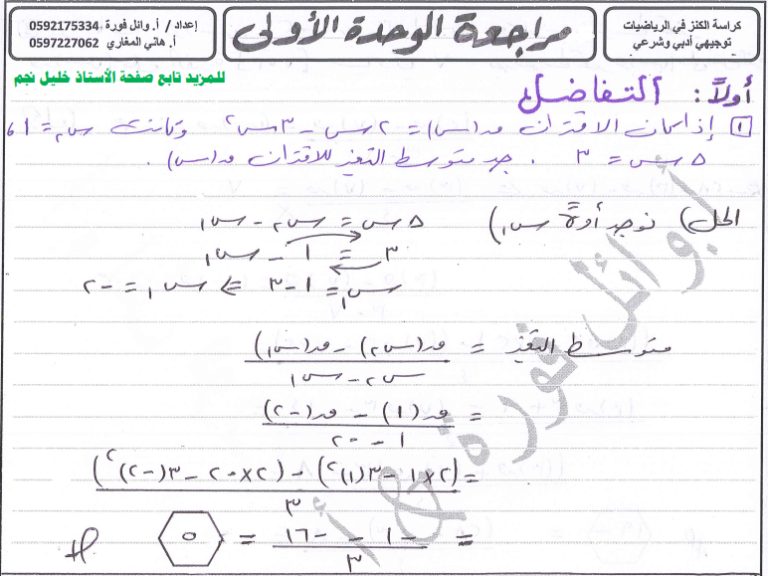 كراسة الكنز في الرياضيات
توجيهي أدبي وشرعي
مراجعة الوحدة الأولى
إعداد / أ. وائل فورة 0592175334
أ. هاني المغاري 0597227062
للمزيد تابع صفحة الأستاذ خليل نجم
أولاً: التفاضل
١ إذا كان الاقتران ق(س) = ٢س - ٣س² وكانت س₂ = ١،
Δس = ٣ . جد متوسط التغير للاقتران ق(س).
الحل) نوجد أولاً س₁) Δس = س₂ - س₁
٣ = ١ - س₁
س₁ = ١ - ٣ ⇐ س₁ = -٢
متوسط التغير = (ق(س₂) - ق(س₁)) / (س₂ - س₁)
= (ق(١) - ق(-٢)) / (١ - -٢)
= ((٢×١ - ٣(١)²) - (٢×-٢ - ٣(-٢)²)) / ٣
= (-١ - -١٦) / ٣ = ٥ #
أبو وائل فورة